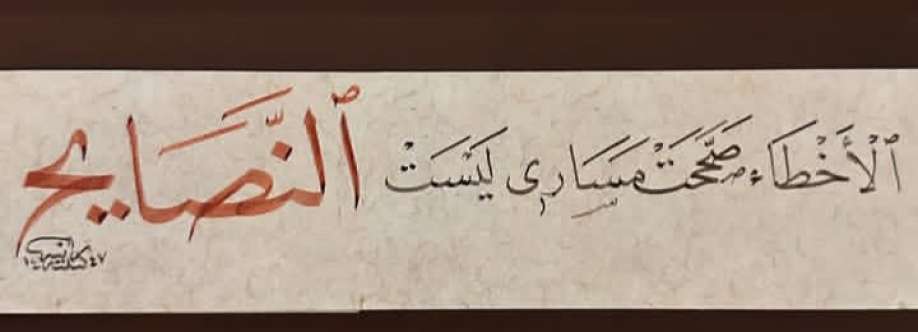 ٱلْأَخْطَاء صَحَّحَتْ مَسَارِي لَيْسَتْ ٱلنَّصَايِح